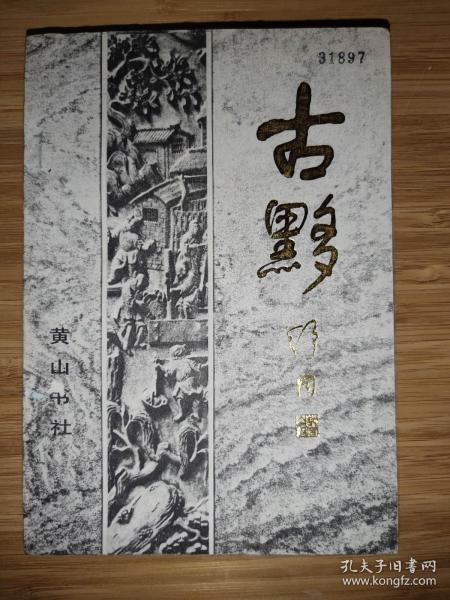 31897
古黟
黄山书社
孔夫子旧书网
www.kongfz.com